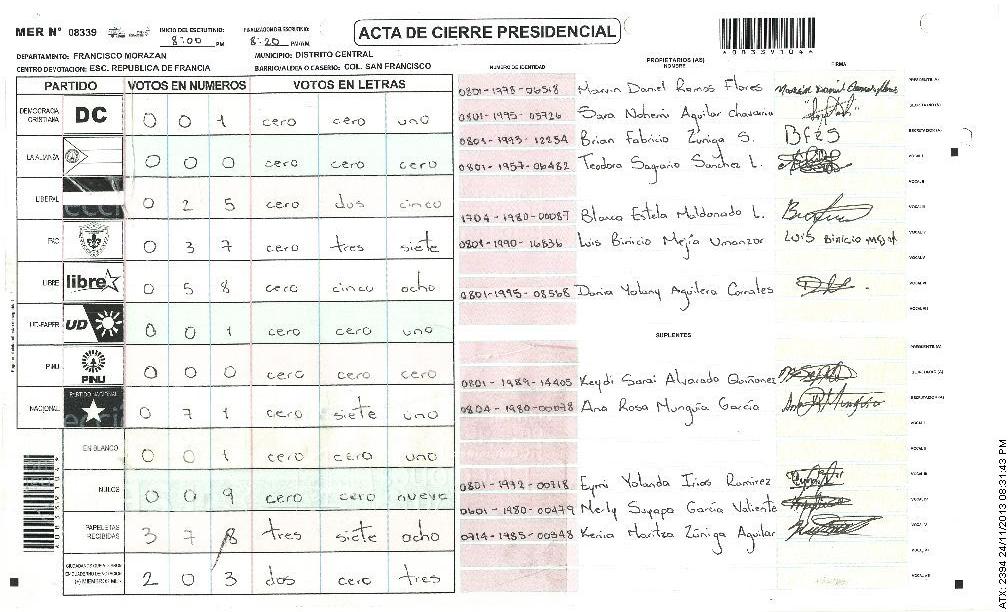 MER N° 08339
INICIO DEL ESCRUTINIO:
8:00 PM
FINALIZACION DEL ESCRUTINIO:
8:20 PM/AM
ACTA DE CIERRE PRESIDENCIAL
*083391046*
DEPARTAMENTO: FRANCISCO MORAZAN
MUNICIPIO: DISTRITO CENTRAL
CENTRO DE VOTACION: ESC. REPUBLICA DE FRANCIA
BARRIO/ALDEA O CASERIO: COL. SAN FRANCISCO
PARTIDO VOTOS EN NUMEROS VOTOS EN LETRAS
DEMOCRACIA CRISTIANA DC 0 0 1 cero cero uno
LA ALIANZA 0 0 0 cero cero cero
LIBERAL 0 2 5 cero dos cinco
PAC 0 3 7 cero tres siete
LIBRE libre 0 5 8 cero cinco ocho
UD-FAPER UD 0 0 1 cero cero uno
PINU PINU 0 0 0 cero cero cero
NACIONAL PARTIDO NACIONAL 0 7 1 cero siete uno
EN BLANCO 0 0 1 cero cero uno
NULOS 0 0 9 cero cero nueve
PAPELETAS RECIBIDAS 3 7 8 tres siete ocho
2 0 3 dos cero tres
NUMERO DE IDENTIDAD
PROPIETARIOS (AS)
NOMBRE
FIRMA
0801-1978-06518 Marvin Daniel Ramos Flores
PRESIDENTE (A)
0801-1995-05726 Sara Nohemi Aguilar Chavarria
SECRETARIO (A)
0801-1993-12254 Brian Fabricio Zuniga S. BFZS
ESCRUTADOR (A)
0801-1957-06482 Teodora Sagario Sanchez L.
VOCAL I
VOCAL II
1704-1980-00087 Blanca Estela Maldonado L.
VOCAL III
0801-1990-16836 Luis Binicio Mejía Umanzor LUIS BINICIO MEJIA
VOCAL IV
VOCAL V
0801-1995-08568 Dania Yolany Aguilera Corrales
VOCAL VI
VOCAL VII
SUPLENTES
PRESIDENTE (A)
0801-1989-14405 Keydi Sarai Alvarado Quiñonez
SECRETARIO (A)
0804-1980-00078 Ana Rosa Munguía García
ESCRUTADOR (A)
VOCAL I
VOCAL II
0801-1972-00718 Eymi Yolanda Irias Ramirez
VOCAL III
0601-1980-00479 Nerly Suyapa García Valiente
VOCAL IV
0714-1985-00348 Kenia Maritza Zúniga Aguilar
VOCAL V
VOCAL VI
VOCAL VII
ATX: 2394 24/11/2013 08:31:43 PM